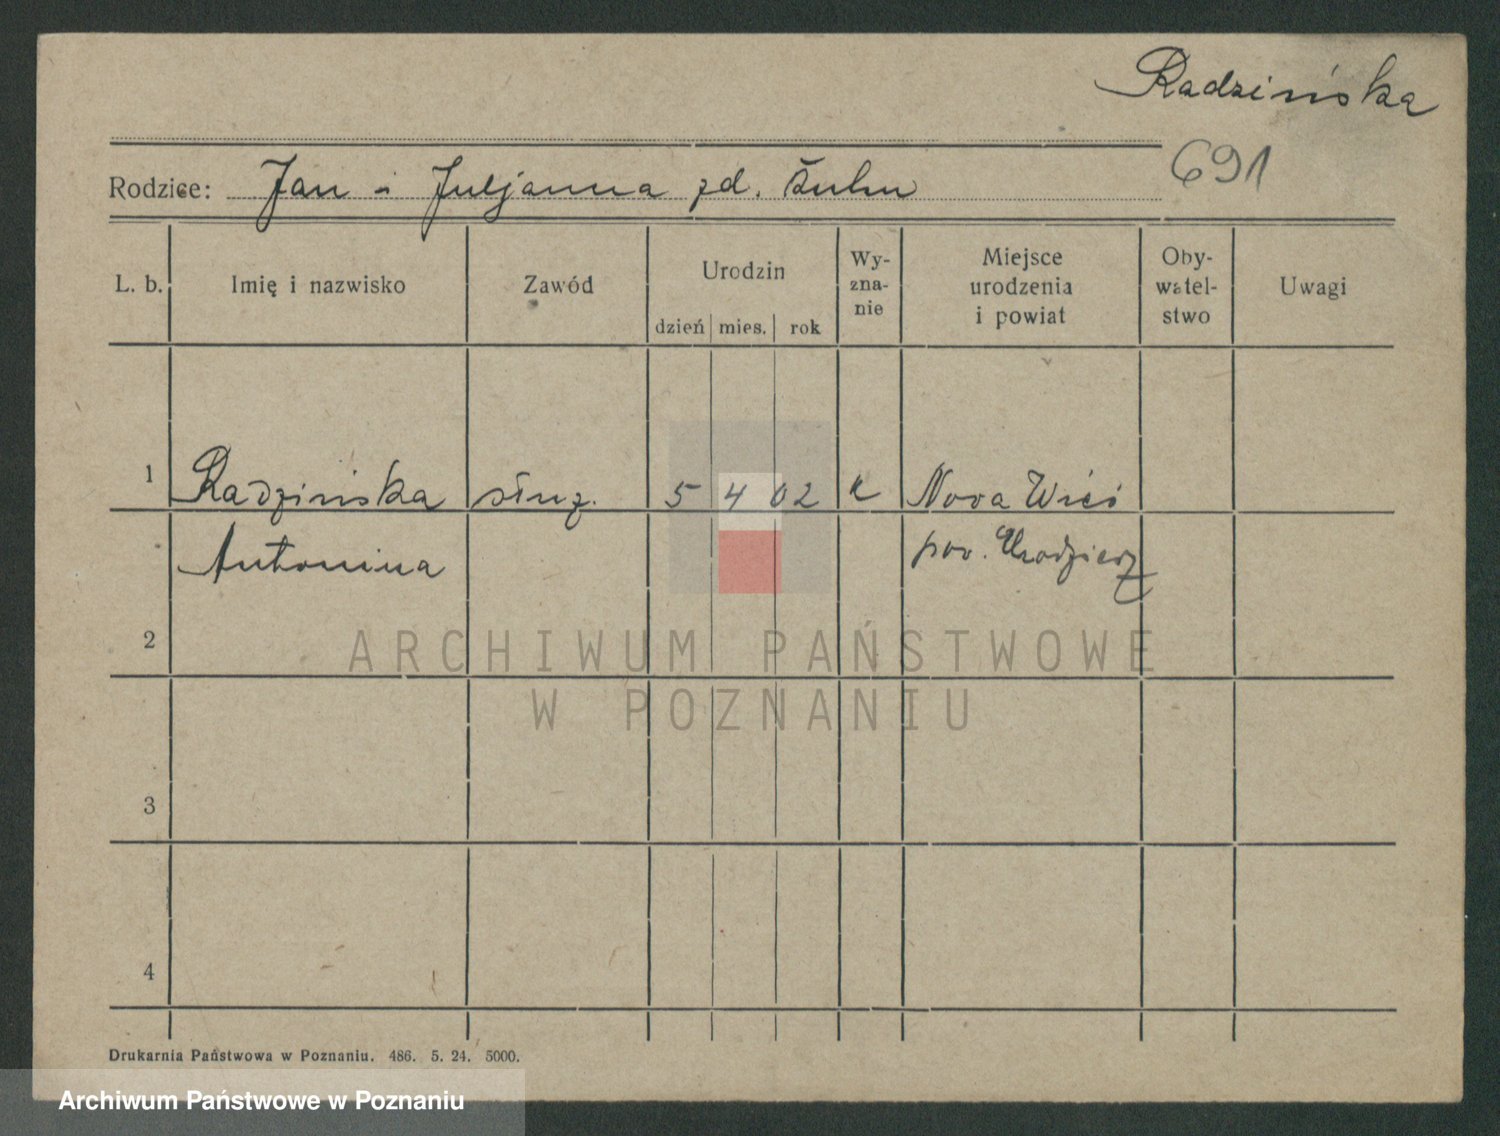 Radzińska
691
Rodzice: Jan i Juljanna zd. Kuhn
L. b. Imię i nazwisko Zawód Urodzin dzień mies. rok Wy-zna-nie Miejsce urodzenia i powiat Oby-watel-stwo Uwagi
1 Radzińska służ. 5 4 02 k Nova Wieś
Antonina pow. Chodzież
2
3
4
ARCHIWUM PAŃSTWOWE
W POZNANIU
Drukarnia Państwowa w Poznaniu. 486. 5. 24. 5000.
Archiwum Państwowe w Poznaniu